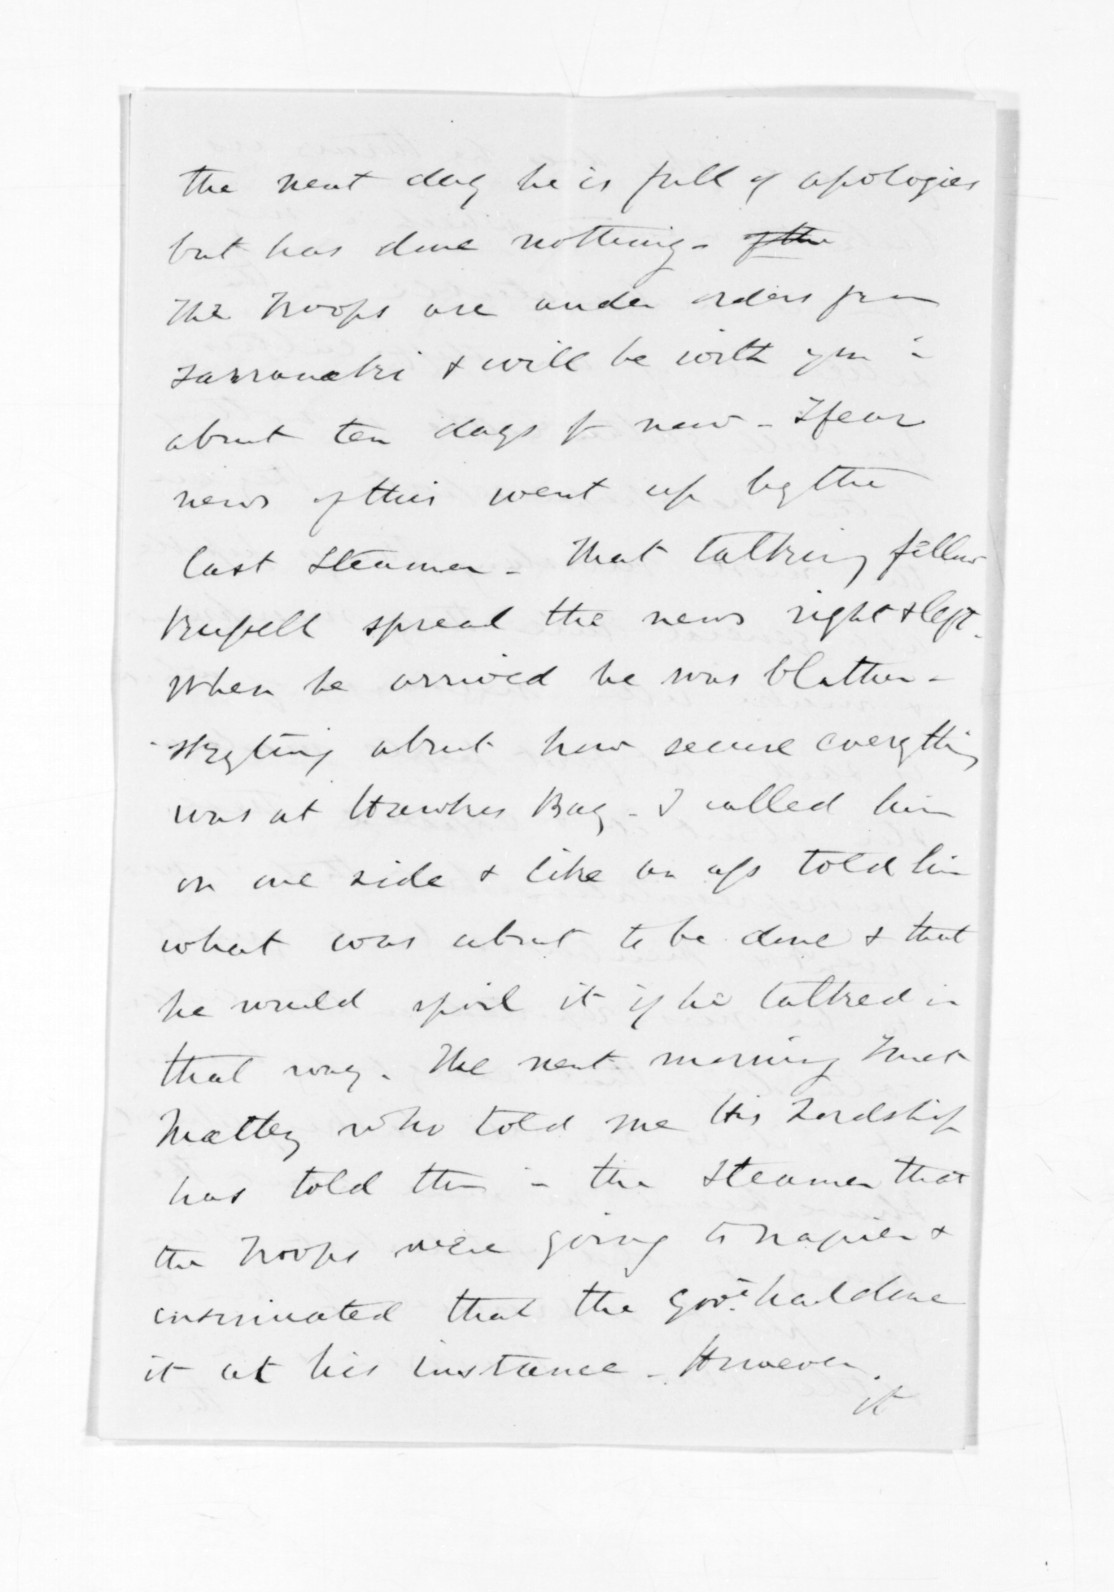 the next day he is full of apologies
but has done nothing - of the
The Troops are under orders from
Tarranaki & will be with you in
about ten days fr now - I fear
news of this went up by the
last Steamer - That talking fellow
Russell spread the news right & left.
When he arrived he was blather-
-skyting about how secure everything
was at Hawkes Bay - I called him
on one side & like an ass told him
what was about to be done & that
he would spoil it if he talked in
that way. The next morning I met
Mattley who told me His Lordship
has told them in the Steamer that
the Troops were going to Napier &
insinuated that the Govt. had done
it at his instance - However
it